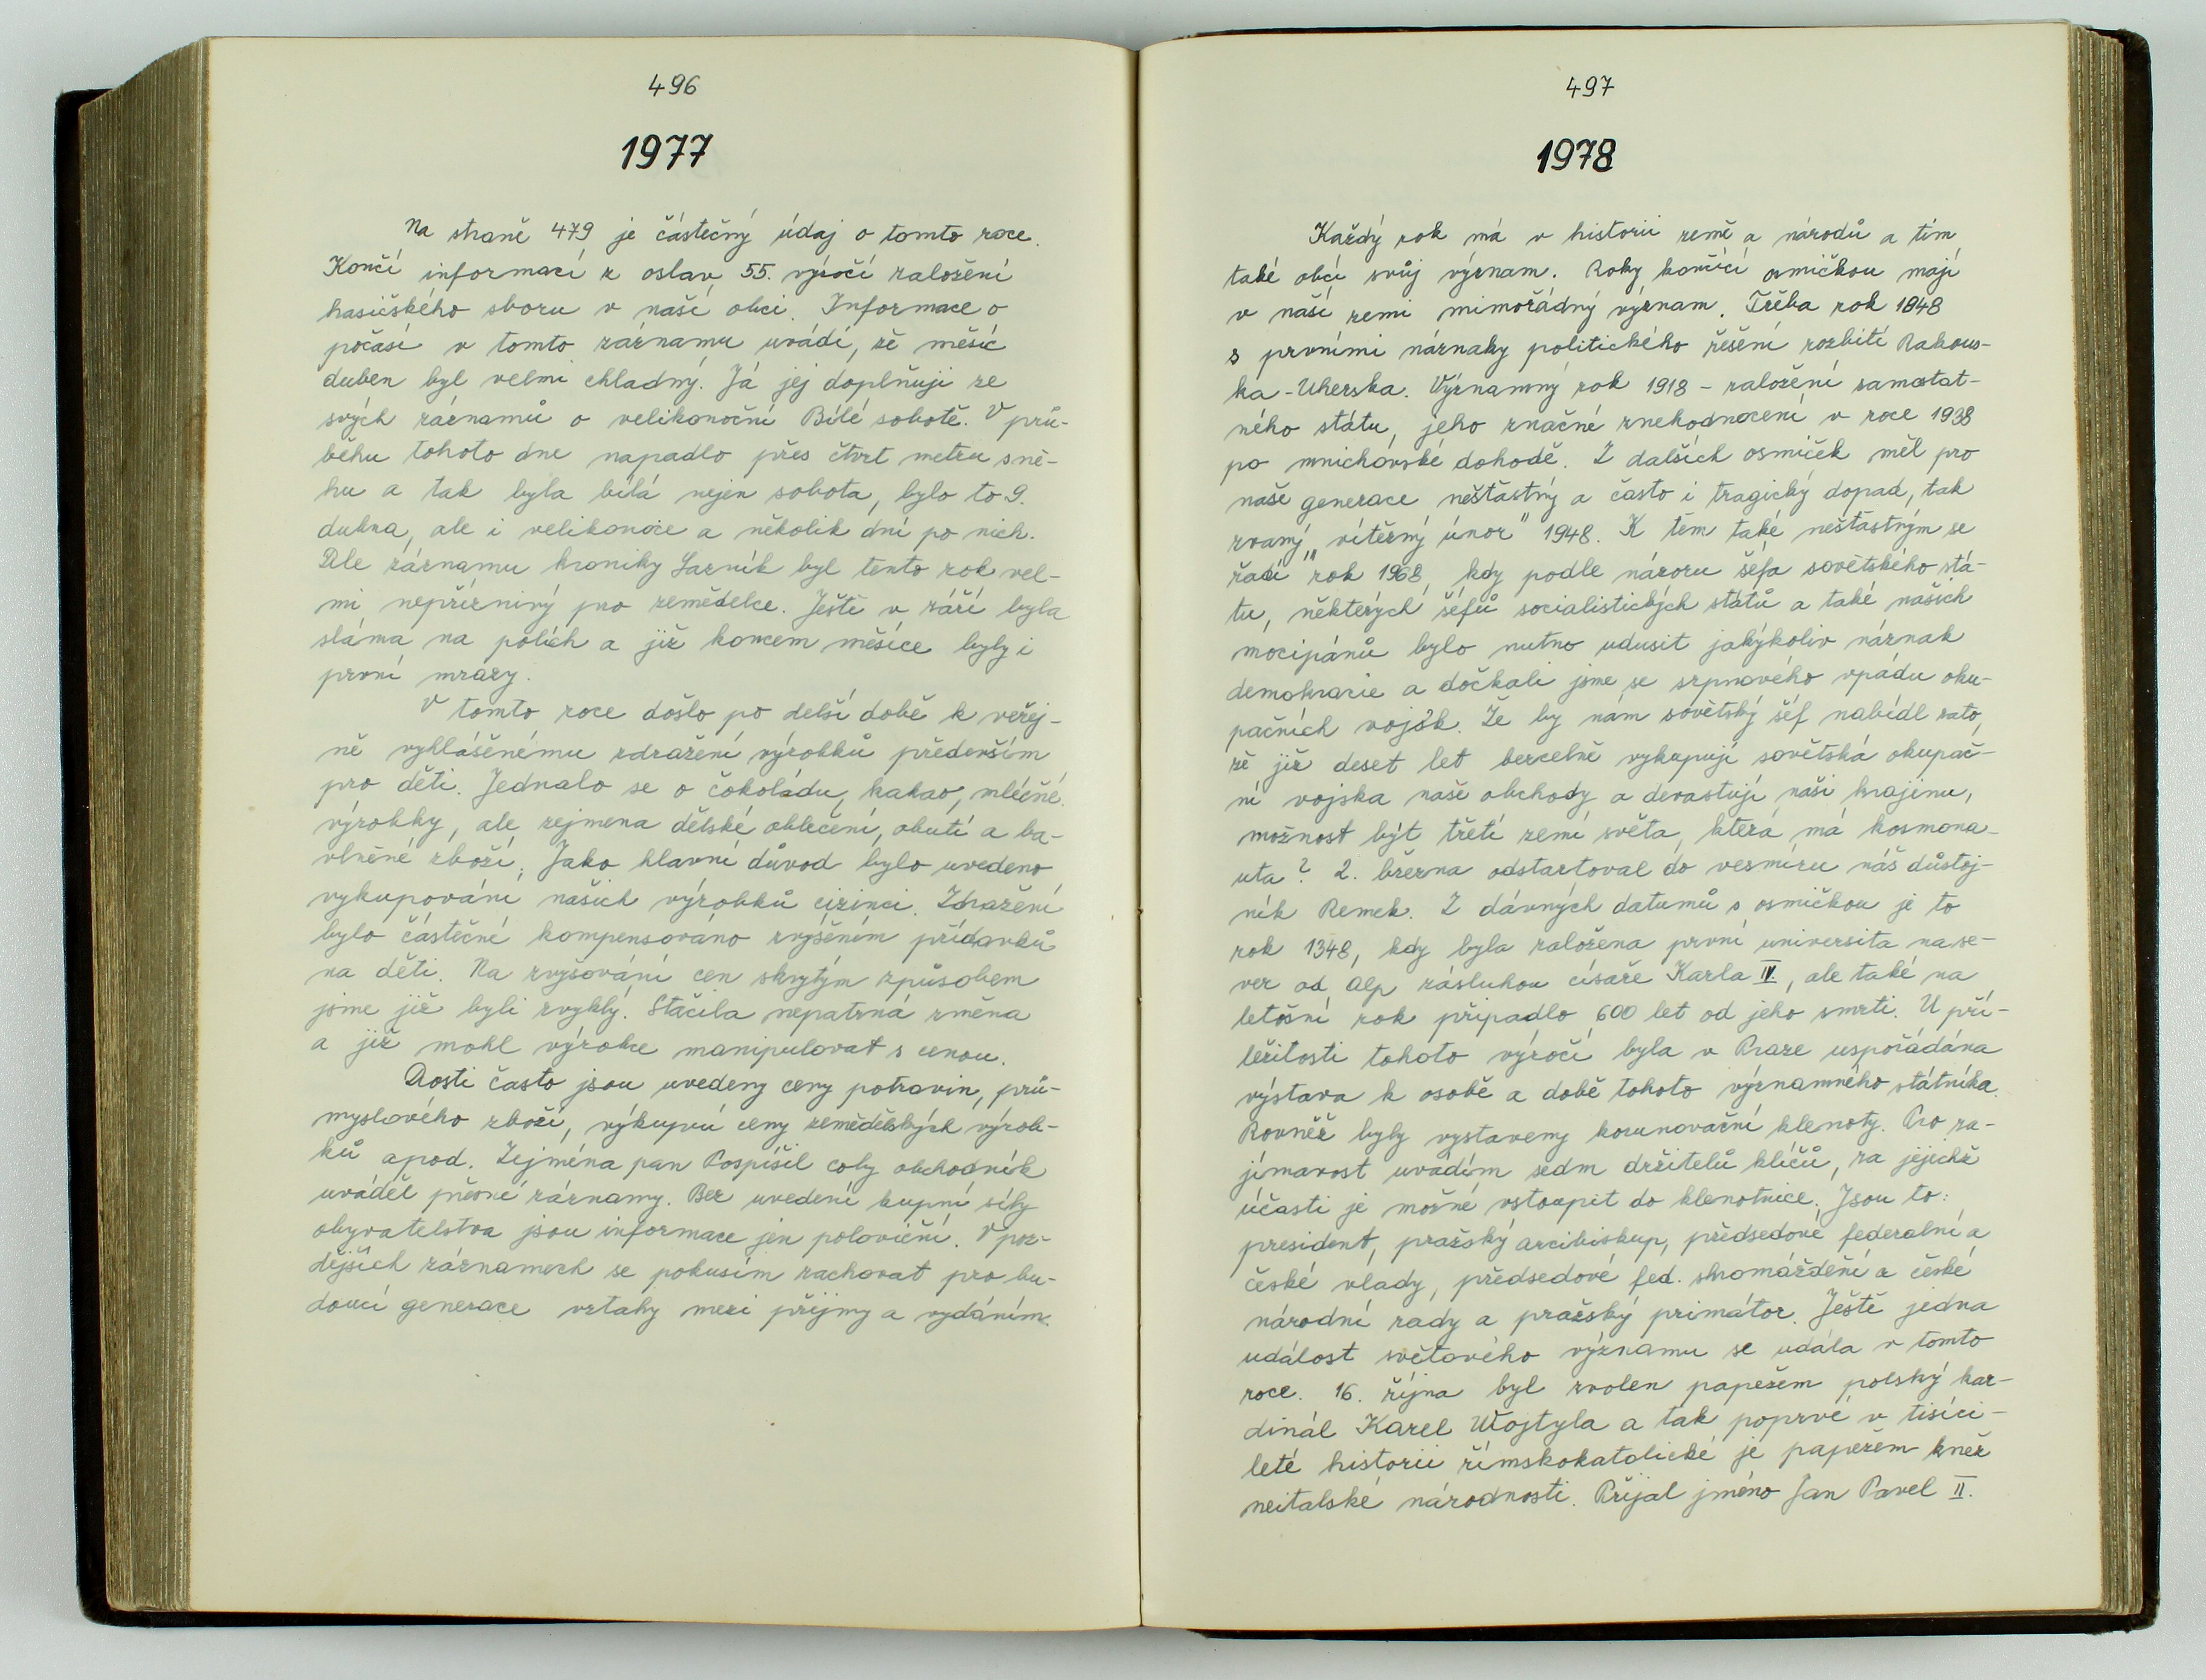 496
1977
Na straně 479 je částečný údaj o tomto roce.
Končí informací z oslav 55. výročí založení
hasičského sboru v naší obci. Informace o
počasí v tomto záznamu uvádí, že měsíc
duben byl velmi chladný. Já jej doplňuji ze
svých záznamů o velikonoční Bílé sobotě. V prů-
běhu tohoto dne napadlo přes čtvrt metru sně-
hu a tak byla bílá nejen sobota, bylo to 9.
dubna, ale i velikonoce a několik dní po nich.
Dle záznamu kroniky Lazník byl tento rok vel-
mi nepříznivý pro zemědelce. Ještě v září byla
sláma na polích a již koncem měsíce byly i
první mrazy.
V tomto roce došlo po delší době k veřej-
ně vyhlášenému zdražení výrobků především
pro děti. Jednalo se o čokoládu, kakao, mléčné
výrobky, ale zejmena dětské oblečení, obutí a ba-
vlněné zboží. Jako hlavní důvod bylo uvedeno
vykupování našich výrobků cizinci. Zdražení
bylo částečné kompensováno zvýšením přídavků
na děti. Na zvyšování cen skrytým způsobem
jsme již byli zvyklý. Stačila nepatrná změna
a již mohl výrobce manipulovat s cenou.
Dosti často jsou uvedeny ceny potravin, prů-
myslového zboží, výkupní ceny zemědělských výrob-
ků apod. Zejména pan Pospíšil coby obchodník
uváděl přesné záznamy. Bez uvedení kupní síly
obyvatelstva jsou informace jen poloviční. V poz-
dějších záznamech se pokusím zachovat pro bu-
doucí generace vztahy mezi příjmy a vydáním.
497
1978
Každý rok má v historii země a národů a tím
také obcí svůj význam. Roky končící osmičkou mají
v naší zemi mimořádný význam. Třeba rok 1848
s prvními náznaky politického řešení rozbití Rakous-
ka-Uherska. Významný rok 1918 - založení samostat-
ného státu, jeho značné znehodnocení v roce 1938
po mnichovské dohodě. Z dalších osmiček měl pro
naše generace nešťastný a často i tragický dopad, tak
zvaný „vítězný únor" 1948. K těm také nešťastným se
řadí rok 1968, kdy podle názoru šéfa sovětského stá-
tu, některých šéfů socialistických států a také našich
mocipánů bylo nutno udusit jakýkoliv náznak
demokracie a dočkali jsme se srpnového vpádu oku-
pačních vojsk. Že by nám sovětský šéf nabídl zato,
že již deset let bezcelně vykupují sovětská okupač-
ní vojska naše obchody a devastují naši krajinu,
možnost být třetí zemí světa, která má kosmona-
uta? 2. března odstartoval do vesmíru náš důstoj-
ník Remek. Z dávných datumů s osmičkou je to
rok 1348, kdy byla založena první universita na se-
ver od Alp zásluhou císaře Karla IV., ale také na
letošní rok připadlo 600 let od jeho smrti. U pří-
ležitosti tohoto výročí byla v Praze uspořádána
výstava k osobě a době tohoto významného státníka.
Rovněž byly vystaveny korunovační klenoty. Pro za-
jímavost uvádím sedm držitelů klíčů, za jejichž
účasti je možné vstoupit do klenotnice. Jsou to:
president, pražský arcibiskup, předsedové federalní a
české vlády, předsedové fed. shromáždění a české
národní rady a pražský primátor. Ještě jedna
událost světového významu se udála v tomto
roce. 16. října byl zvolen papežem polský kar-
dinál Karel Wojtyla a tak poprvé v tisíci-
leté historii římskokatolické je papežem kněz
neitalské národnosti. Přijal jméno Jan Pavel II.